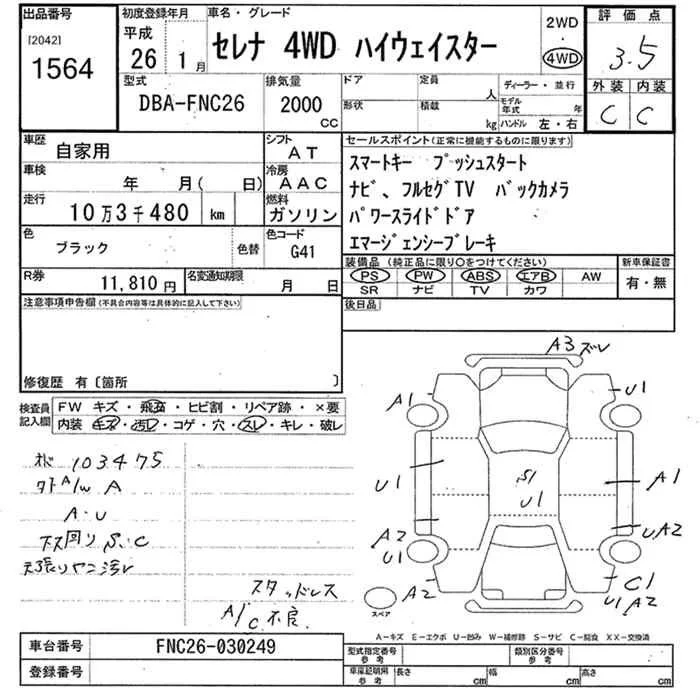 出品番号
[2042]
1564
初度登録年月
平成
26 1月
車名・グレード
セレナ 4WD ハイウェイスター
2WD
・
4WD
評価点
3.5
外装 内装
C C
型式
DBA-FNC26
排気量
2000
CC
ドア
形状
定員
人
積載
kg
ディーラー・並行
モデル年式 年
ハンドル 左・右
車歴
自家用
シフト
AT
車検
年 月( 日)
冷房
AAC
走行
10万3千480 km
燃料
ガソリン
色
ブラック
色替
色コード
G41
R券
11,810円
名変通知期限
月 日
セールスポイント(正常に機能するものに限ります)
スマートキー プッシュスタート
ナビ、フルセグTV バックカメラ
パワースライドドア
エマージェンシーブレーキ
装備品(純正品に限り○をつけてください)
PS PW ABS エアB AW
SR ナビ TV カワ
新車保証書
有・無
後日品
注意事項申告欄(不具合内容等は具体的に記入して下さい)
修復歴 有〔箇所 〕
検査員記入欄
FW キズ・飛石・ヒビ割・リペア跡・×要
内装・キズ・汚レ・コゲ・穴・スレ・キレ・破レ
103475
外A/W A
A・U
下回りS・C
天張りヤニ汚レ
スタッドレス
A/C不良
A3ズレ
A1
U1
U1
S1
U1
A1
A2
U1
UA2
A2
C1
U1 A2
スペア
A−キズ E−エクボ U−凹み W−補修跡 S−サビ C−腐食 XX−交換済
車台番号
FNC26-030249
登録番号
型式指定番号
参考
類別区分番号
参考
車庫証明用
参考
長さ cm
幅 cm
高さ cm